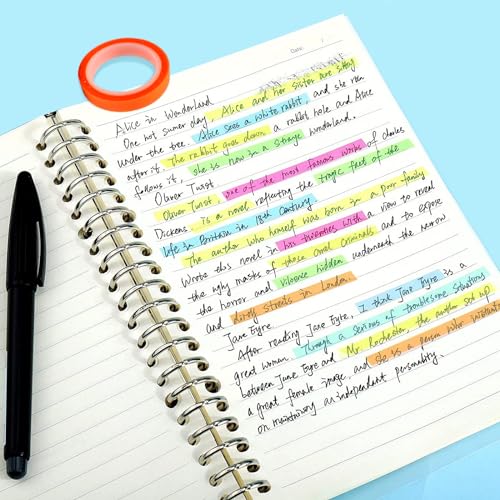 Date: /
Alice in Wonderland
One hot sumer day, Alice and her sister are sitting
under the tree. Alice sees a white rabbit, and she run
after it. The rabbit goes down a rabbit hole and Alice
follows it, she is now in a strange wonderland.
Oliver Twist
Oliver Twist, one of the most famous works of charles
Dickens. is a novel reflecting the tragic fact of the
life in Britain in 18th Century
The author who himself was born in a poor family
Wrote this novel in his twenties with a view to reveal
the ugly masks of those cruel criminals and to expose
the horror and violence hidden underneath the narrow
and dirty streets in London.
Jane Eyre
After reading Jane Eyre, I think Jane Eyre is a
great woman. Through a serious of troublesome situations
between Jane Eyre and Mr. Rochester, the author set up
a great female image, and she is a person who
on maintaining an independant personality.